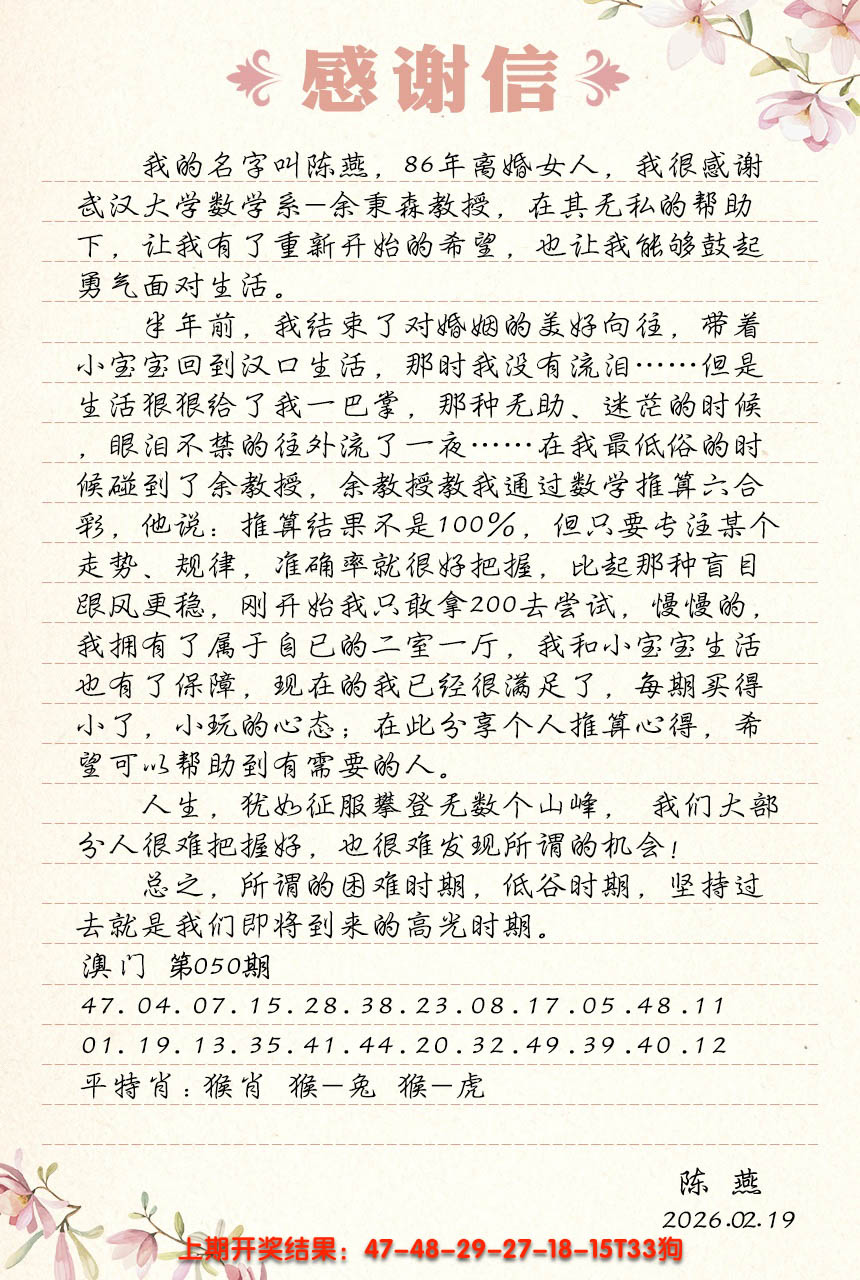 感谢信
我的名字叫陈燕，86年离婚女人，我很感谢
武汉大学数学系—余秉森教授，在其无私的帮助
下，让我有了重新开始的希望，也让我能够鼓起
勇气面对生活。
半年前，我结束了对婚姻的美好向往，带着
小宝宝回到汉口生活，那时我没有流泪……但是
生活狠狠给了我一巴掌，那种无助、迷茫的时候
，眼泪不禁的往外流了一夜……在我最低俗的时
候碰到了余教授，余教授教我通过数学推算六合
彩，他说：推算结果不是100%，但只要专注某个
走势、规律，准确率就很好把握，比起那种盲目
跟风更稳，刚开始我只敢拿200去尝试，慢慢的，
我拥有了属于自已的二室一厅，我和小宝宝生活
也有了保障，现在的我已经很满足了，每期买得
小了，小玩的心态；在此分享个人推算心得，希
望可以帮助到有需要的人。
人生，犹如征服攀登无数个山峰， 我们大部
分人很难把握好，也很难发现所谓的机会！
总之，所谓的困难时期，低谷时期，坚持过
去就是我们即将到来的高光时期。
澳门 第050期
47.04.07.15.28.38.23.08.17.05.48.11
01.19.13.35.41.44.20.32.49.39.40.12
平特肖：猴肖 猴—兔 猴—虎
陈 燕
2026.02.19
上期开奖结果：47-48-29-27-18-15T33狗